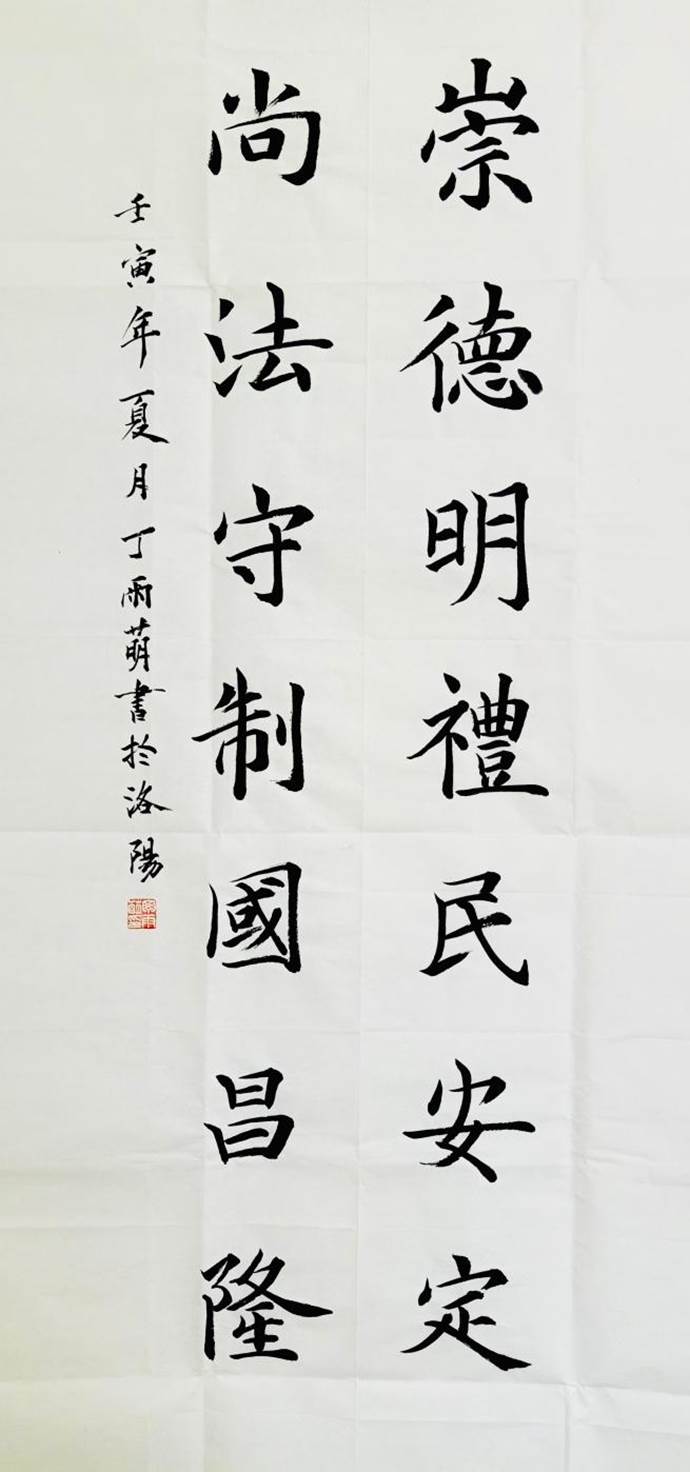 崇德明禮民安定
尚法守制國昌隆
壬寅年夏月丁雨萌書於洛陽